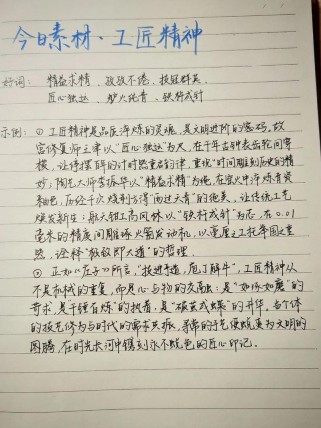 今日素材·工匠精神
好词: 精益求精、孜孜不倦、技冠群英
匠心独运、炉火纯青、铁杵成针
示例: ① 工匠精神是品质淬炼的灵魂,是文明进阶的密码。故
宫修复师王津以"匠心独运"为火,在千年古钟表齿轮间雩
摸,让停摆的计时然重启韵律,重悦"时间雕刻历史的精
妙;陶艺大师李振华以"精益求精"为炬,在窑火中淬炼青瓷
釉色,历经千次烧制方得"雨过天青"的绝美,让传统工艺
焕发新生;航天钳工高凤林以"铁杵成针"为志,在0.01
毫米的精度间雕琢火箭发动机,以毫厘之工托举国之重
器,诠释"极致即大道"的哲理。
② 正如《庄子》所言,"技进乎道,庖丁解牛",工匠精神从
不是机械的重复,而是心与物的交融:是"如琢如磨"的
苛求,是千锤百炼"的执着,是"破茧成蝶"的升华。当个体
的技艺修为与时代的需求共振,寻常的手艺便蜕变为文明的
图腾,在时光长河中镌刻永不蜕色的匠心印记。